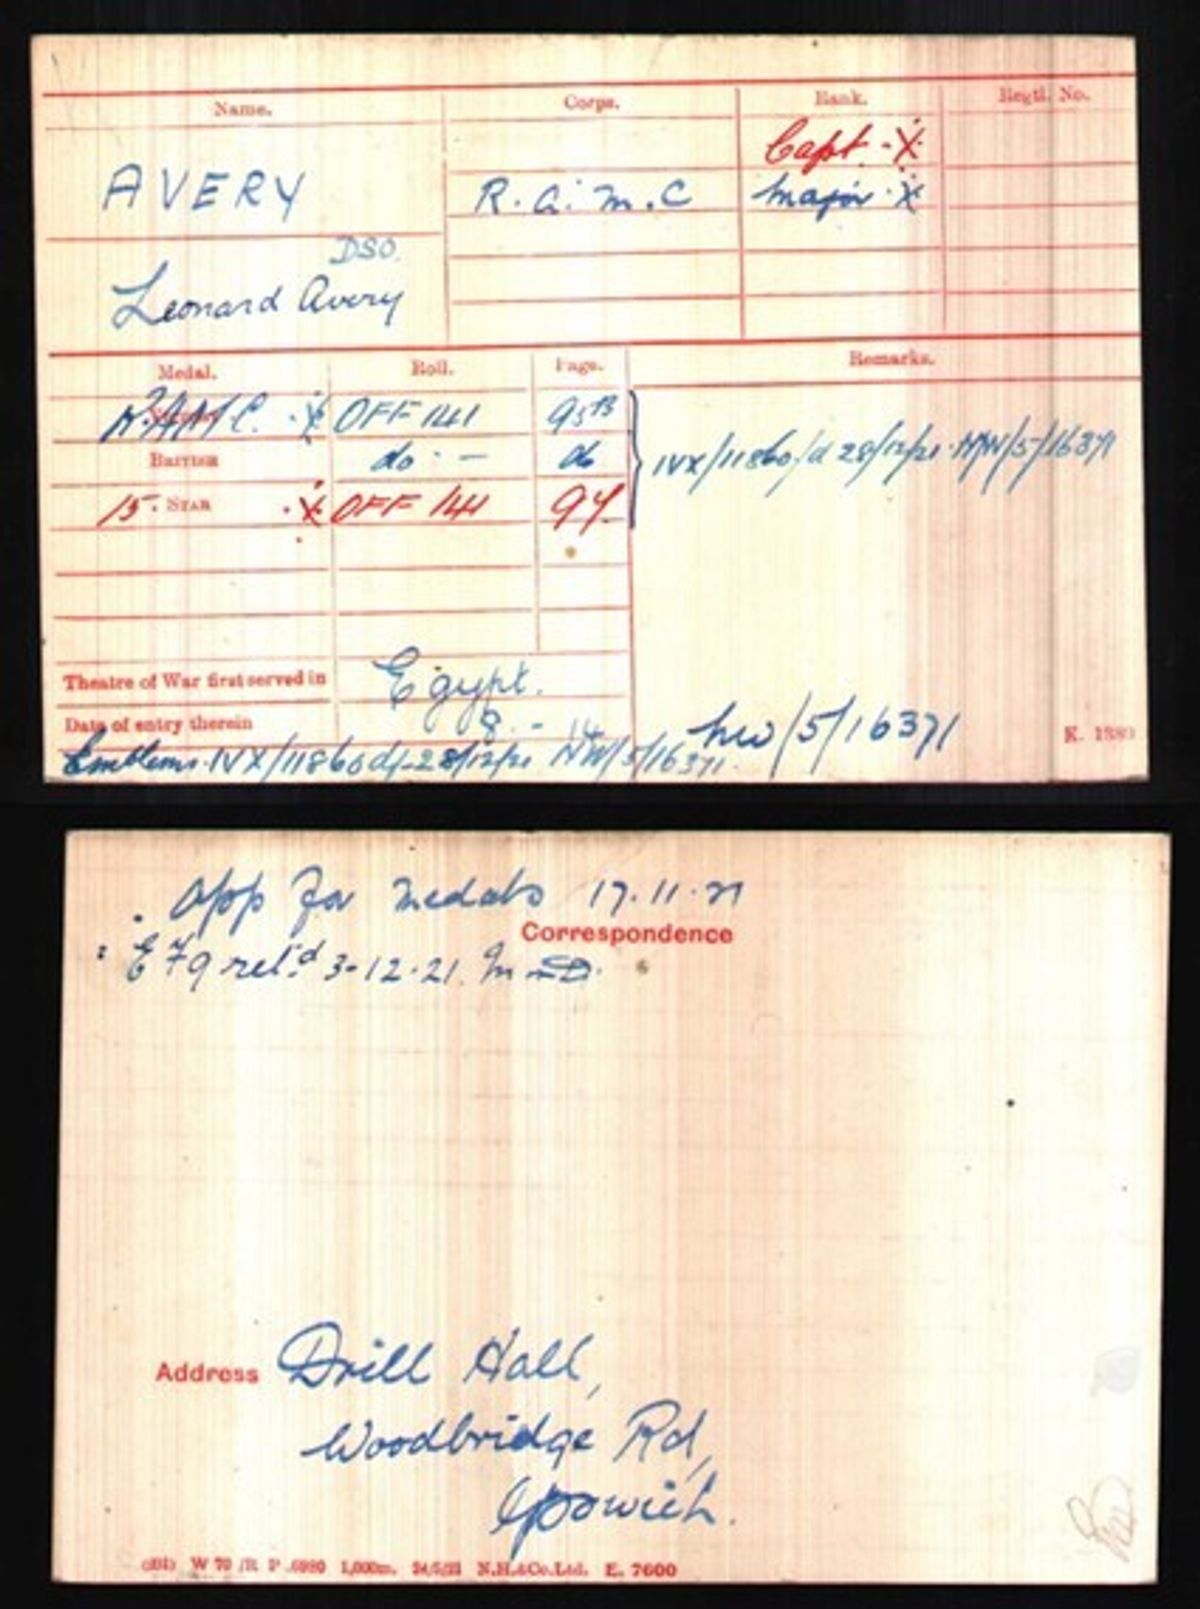 Name. Corps. Rank. Regtl. No.
Capt. X
AVERY R.A.M.C Major X
DSO.
Leonard Avery
Medal. Roll. Page. Remarks.
X OFF 141 95B
BRITISH do - do IVX/11860/d 28/12/21 NW/5/16371
15 STAR X OFF 141 94
Theatre of War first served in Egypt.
Date of entry therein 8. -
NW/5/16371 K. 1380
Emblems IVX/11860 d/- 28/12/21 NW/5/16371.
App for medals 17.11.21
Correspondence
EF9 retd 3-12-21.
Address Drill Hall,
Woodbridge Rd,
Ipswich.
W 70 1,000m. N.H.&Co.Ltd. E. 7600